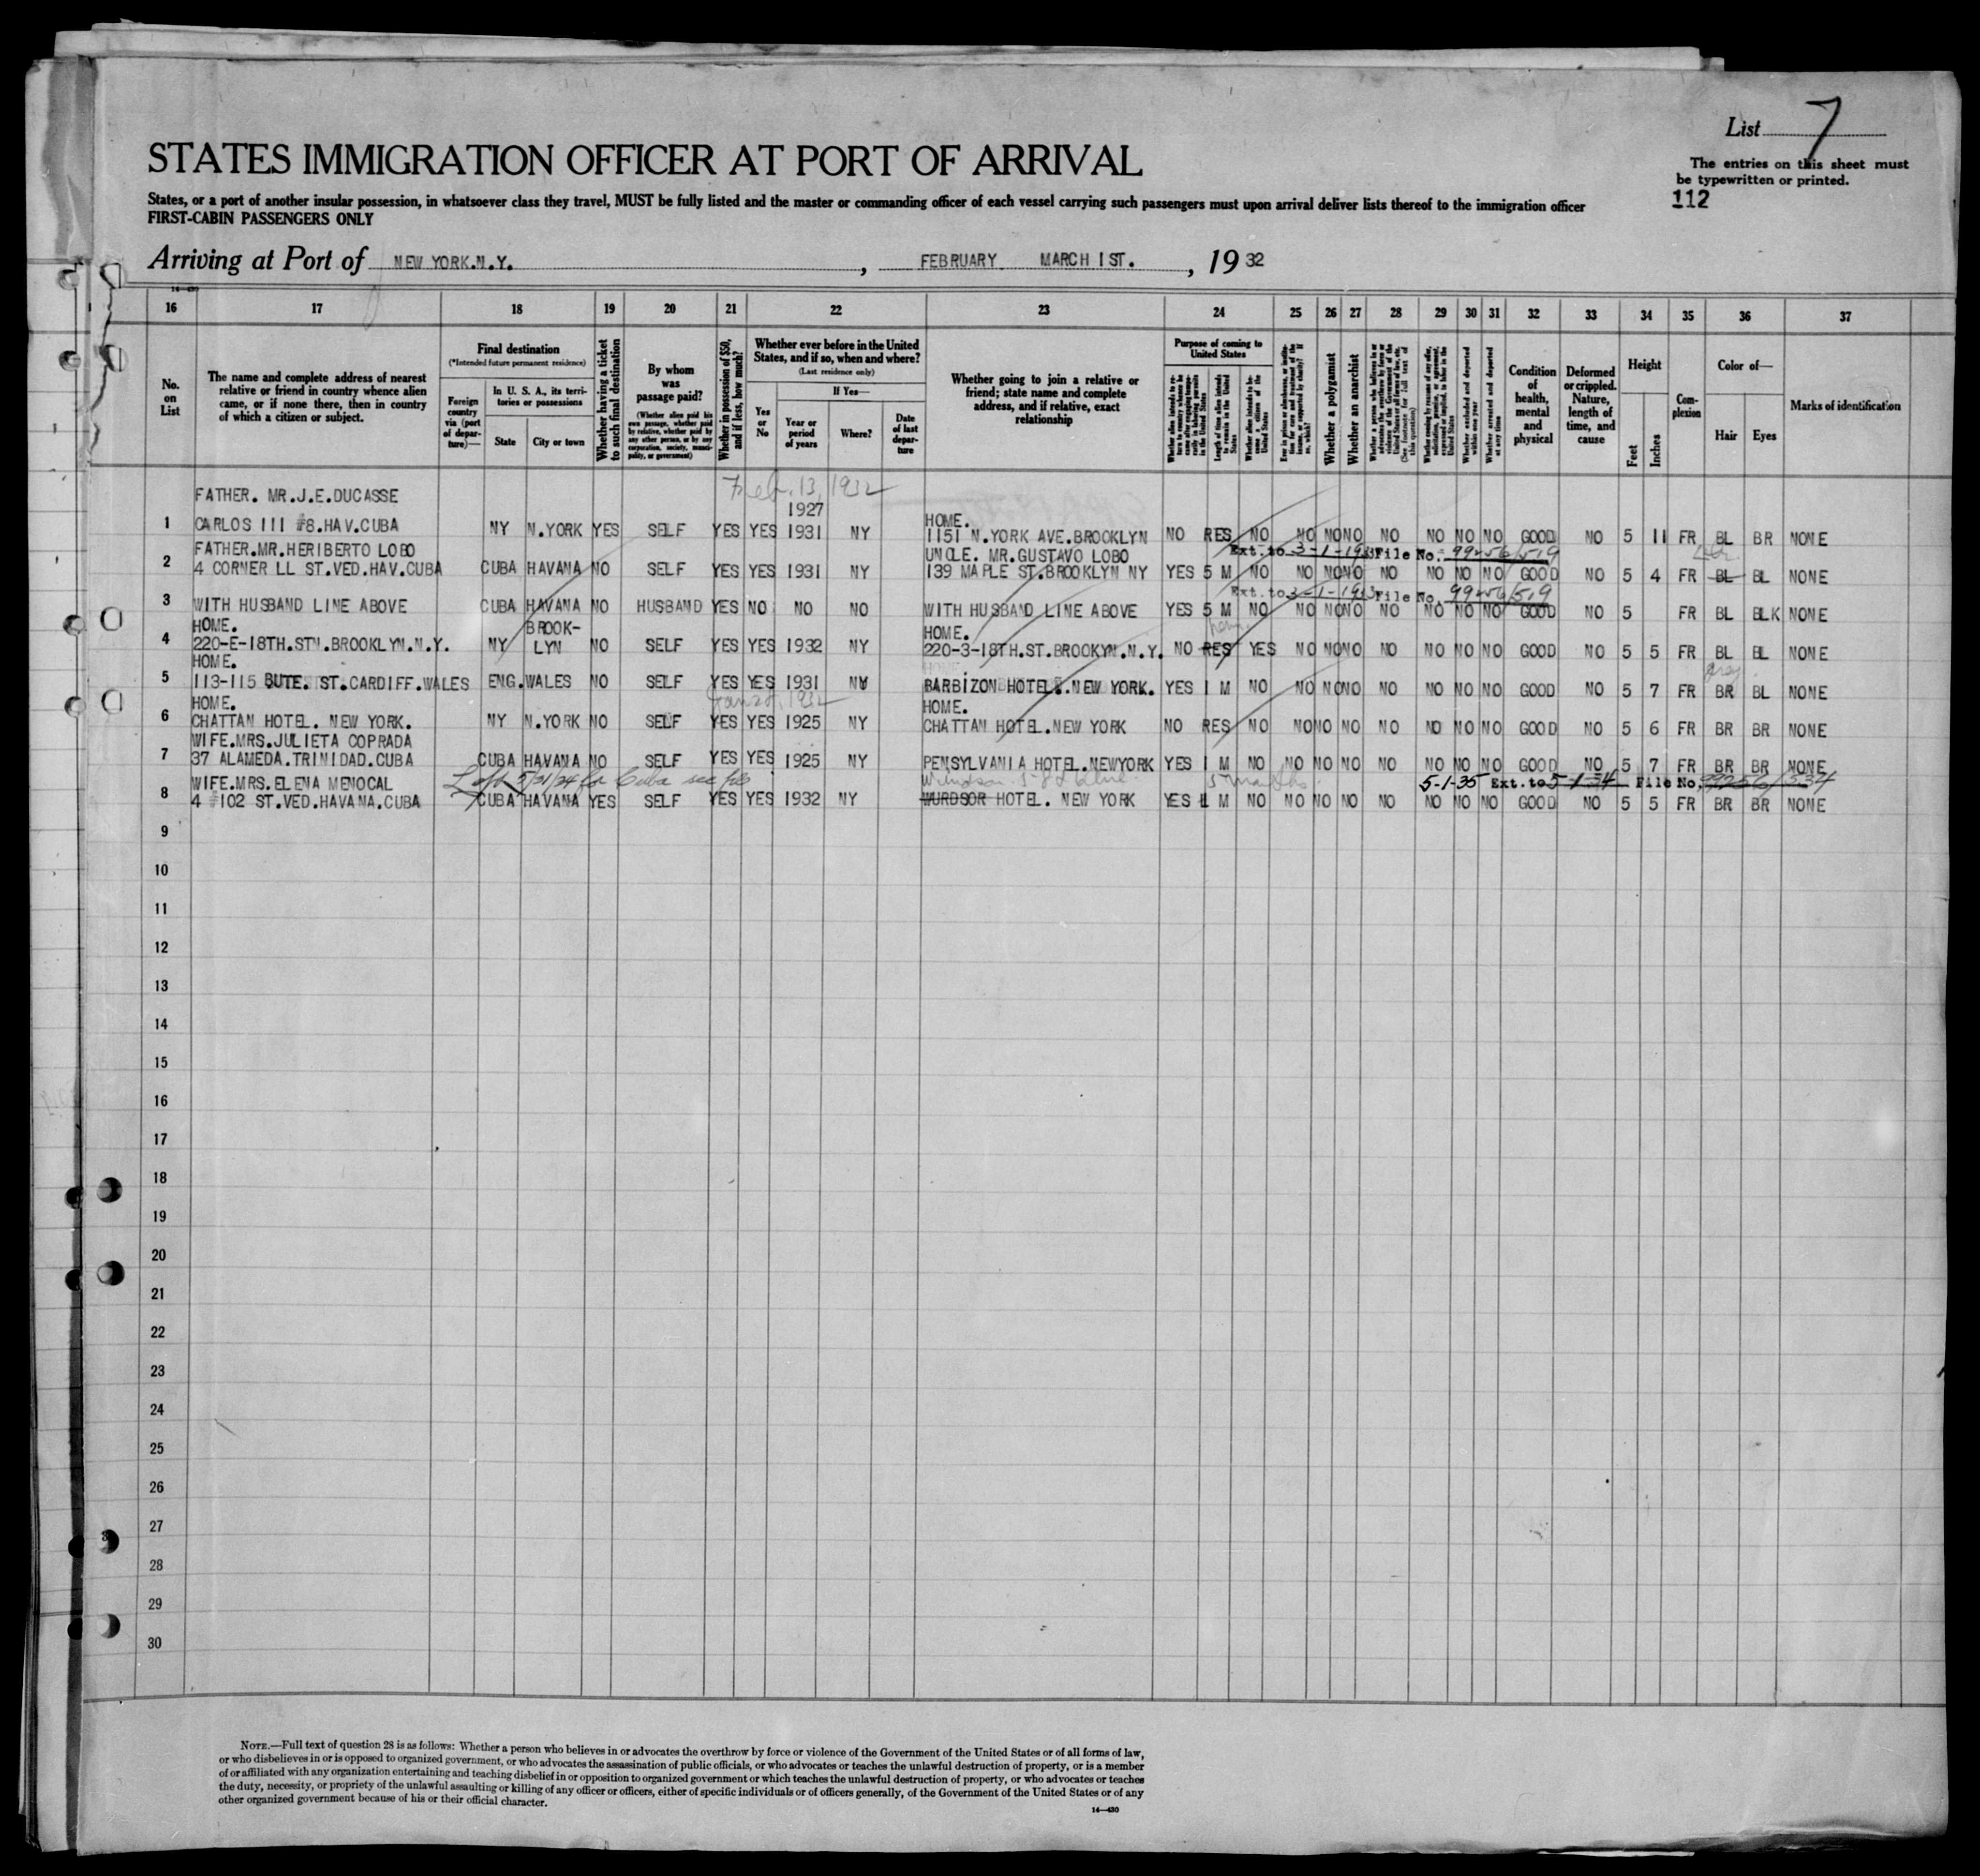 List 7
The entries on this sheet must
be typewritten or printed.
112
STATES IMMIGRATION OFFICER AT PORT OF ARRIVAL
States, or a port of another insular possession, in whatsoever class they travel, MUST be fully listed and the master or commanding officer of each vessel carrying such passengers must upon arrival deliver lists thereof to the immigration officer
FIRST-CABIN PASSENGERS ONLY
Arriving at Port of NEW YORK.N.Y. , FEBRUARY MARCH 1ST. , 19 32
16 17 18 19 20 21 22 23 24 25 26 27 28 29 30 31 32 33 34 35 36 37
No. on List
The name and complete address of nearest relative or friend in country whence alien came, or if none there, then in country of which a citizen or subject.
Final destination
(*Intended future permanent residence)
Foreign country via (port of departure)—
In U. S. A., its territories or possessions
State
City or town
Whether having a ticket to such final destination
By whom was passage paid?
(Whether alien paid his own passage, whether paid by relative, whether paid by any other person, or by any corporation, society, municipality, or government)
Whether in possession of $50, and if less, how much?
Whether ever before in the United States, and if so, when and where?
(Last residence only)
Yes or No
If Yes—
Year or period of years
Where?
Date of last departure
Whether going to join a relative or friend; state name and complete address, and if relative, exact relationship
Purpose of coming to United States
Length of time alien intends to remain in the United States
Whether a polygamist
Whether an anarchist
Whether excluded and deported within one year
Whether arrested and deported at any time
Condition of health, mental and physical
Deformed or crippled. Nature, length of time, and cause
Height
Feet
Inches
Complexion
Color of—
Hair
Eyes
Marks of identification
Feb. 13, 1932
FATHER. MR.J.E.DUCASSE 1927 HOME.
1 CARLOS III #8.HAV.CUBA NY N.YORK YES SELF YES YES 1931 NY 1151 N.YORK AVE.BROOKLYN NO RES NO NO NO NO NO NO NO NO GOOD NO 5 11 FR BL BR NONE
FATHER.MR.HERIBERTO LOBO UNCLE. MR.GUSTAVO LOBO Ext. to 3-1-1933 File No. 99256/519
2 4 CORNER LL ST.VED.HAV.CUBA CUBA HAVANA NO SELF YES YES 1931 NY 139 MAPLE ST.BROOKLYN NY YES 5 M NO NO NO NO NO NO NO NO GOOD NO 5 4 FR BL BL NONE
Ext. to 3-1-1933 File No. 99256/519
3 WITH HUSBAND LINE ABOVE CUBA HAVANA NO HUSBAND YES NO NO NO WITH HUSBAND LINE ABOVE YES 5 M NO NO NO NO NO NO NO NO GOOD NO 5 FR BL BLK NONE
HOME. BROOK- HOME.
4 220-E-18TH.STN.BROOKLYN.N.Y. NY LYN NO SELF YES YES 1932 NY 220-3-18TH.ST.BROOKYN.N.Y. NO RES YES NO NO NO NO NO NO NO GOOD NO 5 5 FR BL BL NONE
HOME. gray
5 113-115 BUTE. ST.CARDIFF.WALES ENG.WALES NO SELF YES YES 1931 NY BARBIZON HOTEL.NEW YORK. YES 1 M NO NO NO NO NO NO NO NO GOOD NO 5 7 FR BR BL NONE
HOME. HOME.
6 CHATTAN HOTEL. NEW YORK. NY N.YORK NO SELF YES YES 1925 NY CHATTAN HOTEL.NEW YORK NO RES NO NO NO NO NO NO NO NO GOOD NO 5 6 FR BR BR NONE
WIFE.MRS.JULIETA COPRADA
7 37 ALAMEDA.TRINIDAD.CUBA CUBA HAVANA NO SELF YES YES 1925 NY PENSYLVANIA HOTEL.NEWYORK YES 1 M NO NO NO NO NO NO NO NO GOOD NO 5 7 FR BR BR NONE
WIFE.MRS.ELENA MENOCAL Left 3/21/34 for Cuba see file 5 months 5-1-35 Ext. to 5-1-34 File No. 99256/534
8 4 #102 ST.VED.HAVANA.CUBA CUBA HAVANA YES SELF YES YES 1932 NY WURDSOR HOTEL. NEW YORK YES 1 M NO NO NO NO NO NO NO NO GOOD NO 5 5 FR BR BR NONE
9
10
11
12
13
14
15
16
17
18
19
20
21
22
23
24
25
26
27
28
29
30
NOTE.—Full text of question 28 is as follows: Whether a person who believes in or advocates the overthrow by force or violence of the Government of the United States or of all forms of law,
or who disbelieves in or is opposed to organized government, or who advocates the assassination of public officials, or who advocates or teaches the unlawful destruction of property, or is a member
of or affiliated with any organization entertaining and teaching disbelief in or opposition to organized government or which teaches the unlawful destruction of property, or who advocates or teaches
the duty, necessity, or propriety of the unlawful assaulting or killing of any officer or officers, either of specific individuals or of officers generally, of the Government of the United States or of any
other organized government because of his or their official character.
14—430